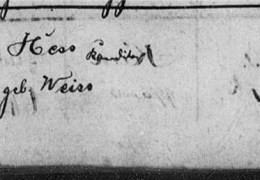 Hess Konditor
geb. Weiss